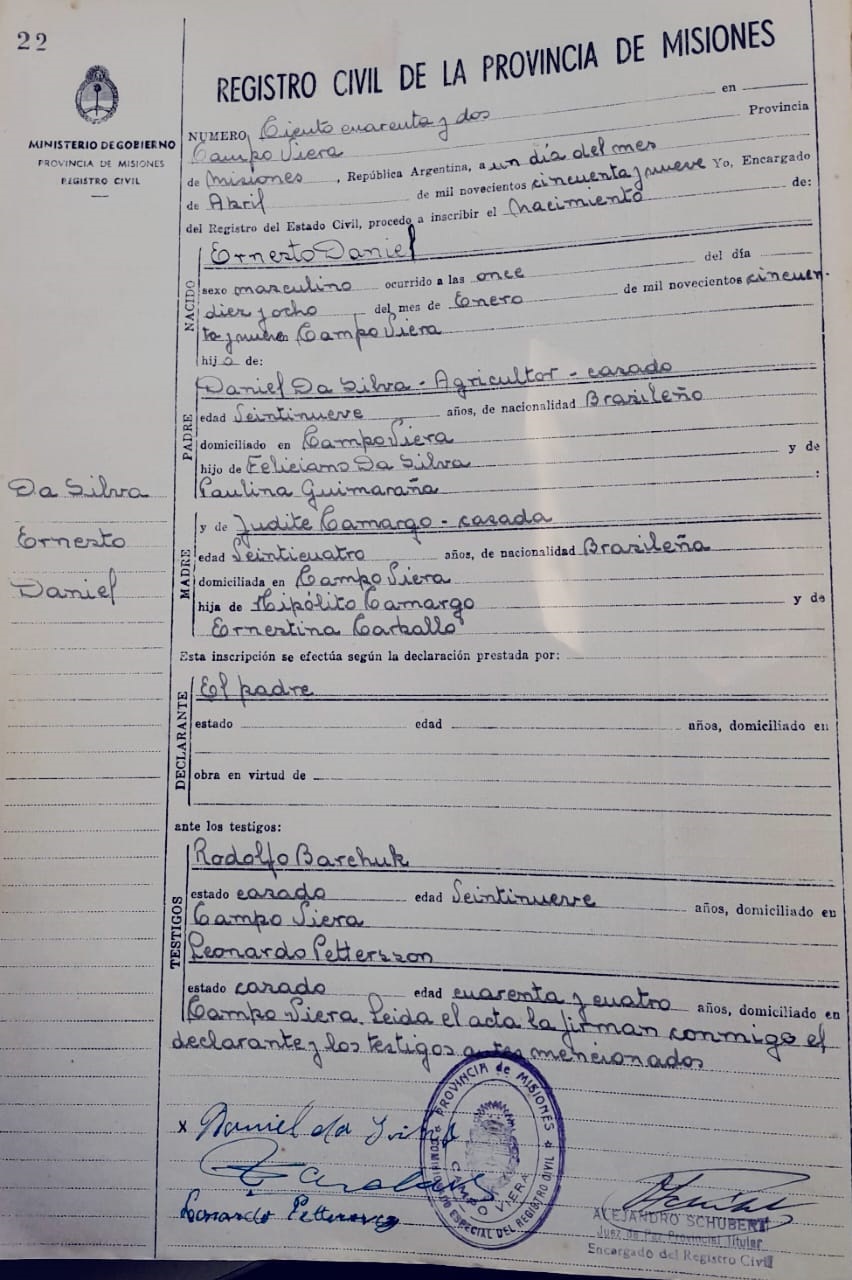 22
MINISTERIO DE GOBIERNO
PROVINCIA DE MISIONES
REGISTRO CIVIL
REGISTRO CIVIL DE LA PROVINCIA DE MISIONES
NUMERO Ciento cuarenta y dos en
Campo Viera Provincia
de Misiones, República Argentina, a un día del mes
de Abril de mil novecientos cincuenta y nueve Yo, Encargado
del Registro del Estado Civil, procedo a inscribir el Nacimiento de:
NACIDO
Ernesto Daniel
sexo masculino ocurrido a las once del día
diez y ocho del mes de Enero de mil novecientos cincuen-
ta y nueve Campo Viera
hijo de:
PADRE
Daniel Da Silva - Agricultor - casado
edad Veintinueve años, de nacionalidad Brasileño
domiciliado en Campo Viera
hijo de Feliciano Da Silva y de
Paulina Guimaraña :
Da Silva
Ernesto
Daniel
MADRE
y de Judite Camargo - casada
edad Veinticuatro años, de nacionalidad Brasileña
domiciliada en Campo Viera
hija de Hipólito Camargo y de
Ernestina Carballo
Esta inscripción se efectúa según la declaración prestada por:
DECLARANTE
El padre
estado edad años, domiciliado en
obra en virtud de
ante los testigos:
TESTIGOS
Rodolfo Barchuk
estado casado edad Veintinueve años, domiciliado en
Campo Viera
Leonardo Pettersson
estado casado edad cuarenta y cuatro años, domiciliado en
Campo Viera. Leida el acta la firman conmigo el
declarante y los testigos antes mencionados
x Daniel da Silva
Leonardo
PROVINCIA de MISIONES
ESPECIAL DEL REGISTRO CIVIL
CAMPO VIERA
ALEJANDRO SCHUBERT
Juez de Paz Provincial Titular
Encargado del Registro Civil